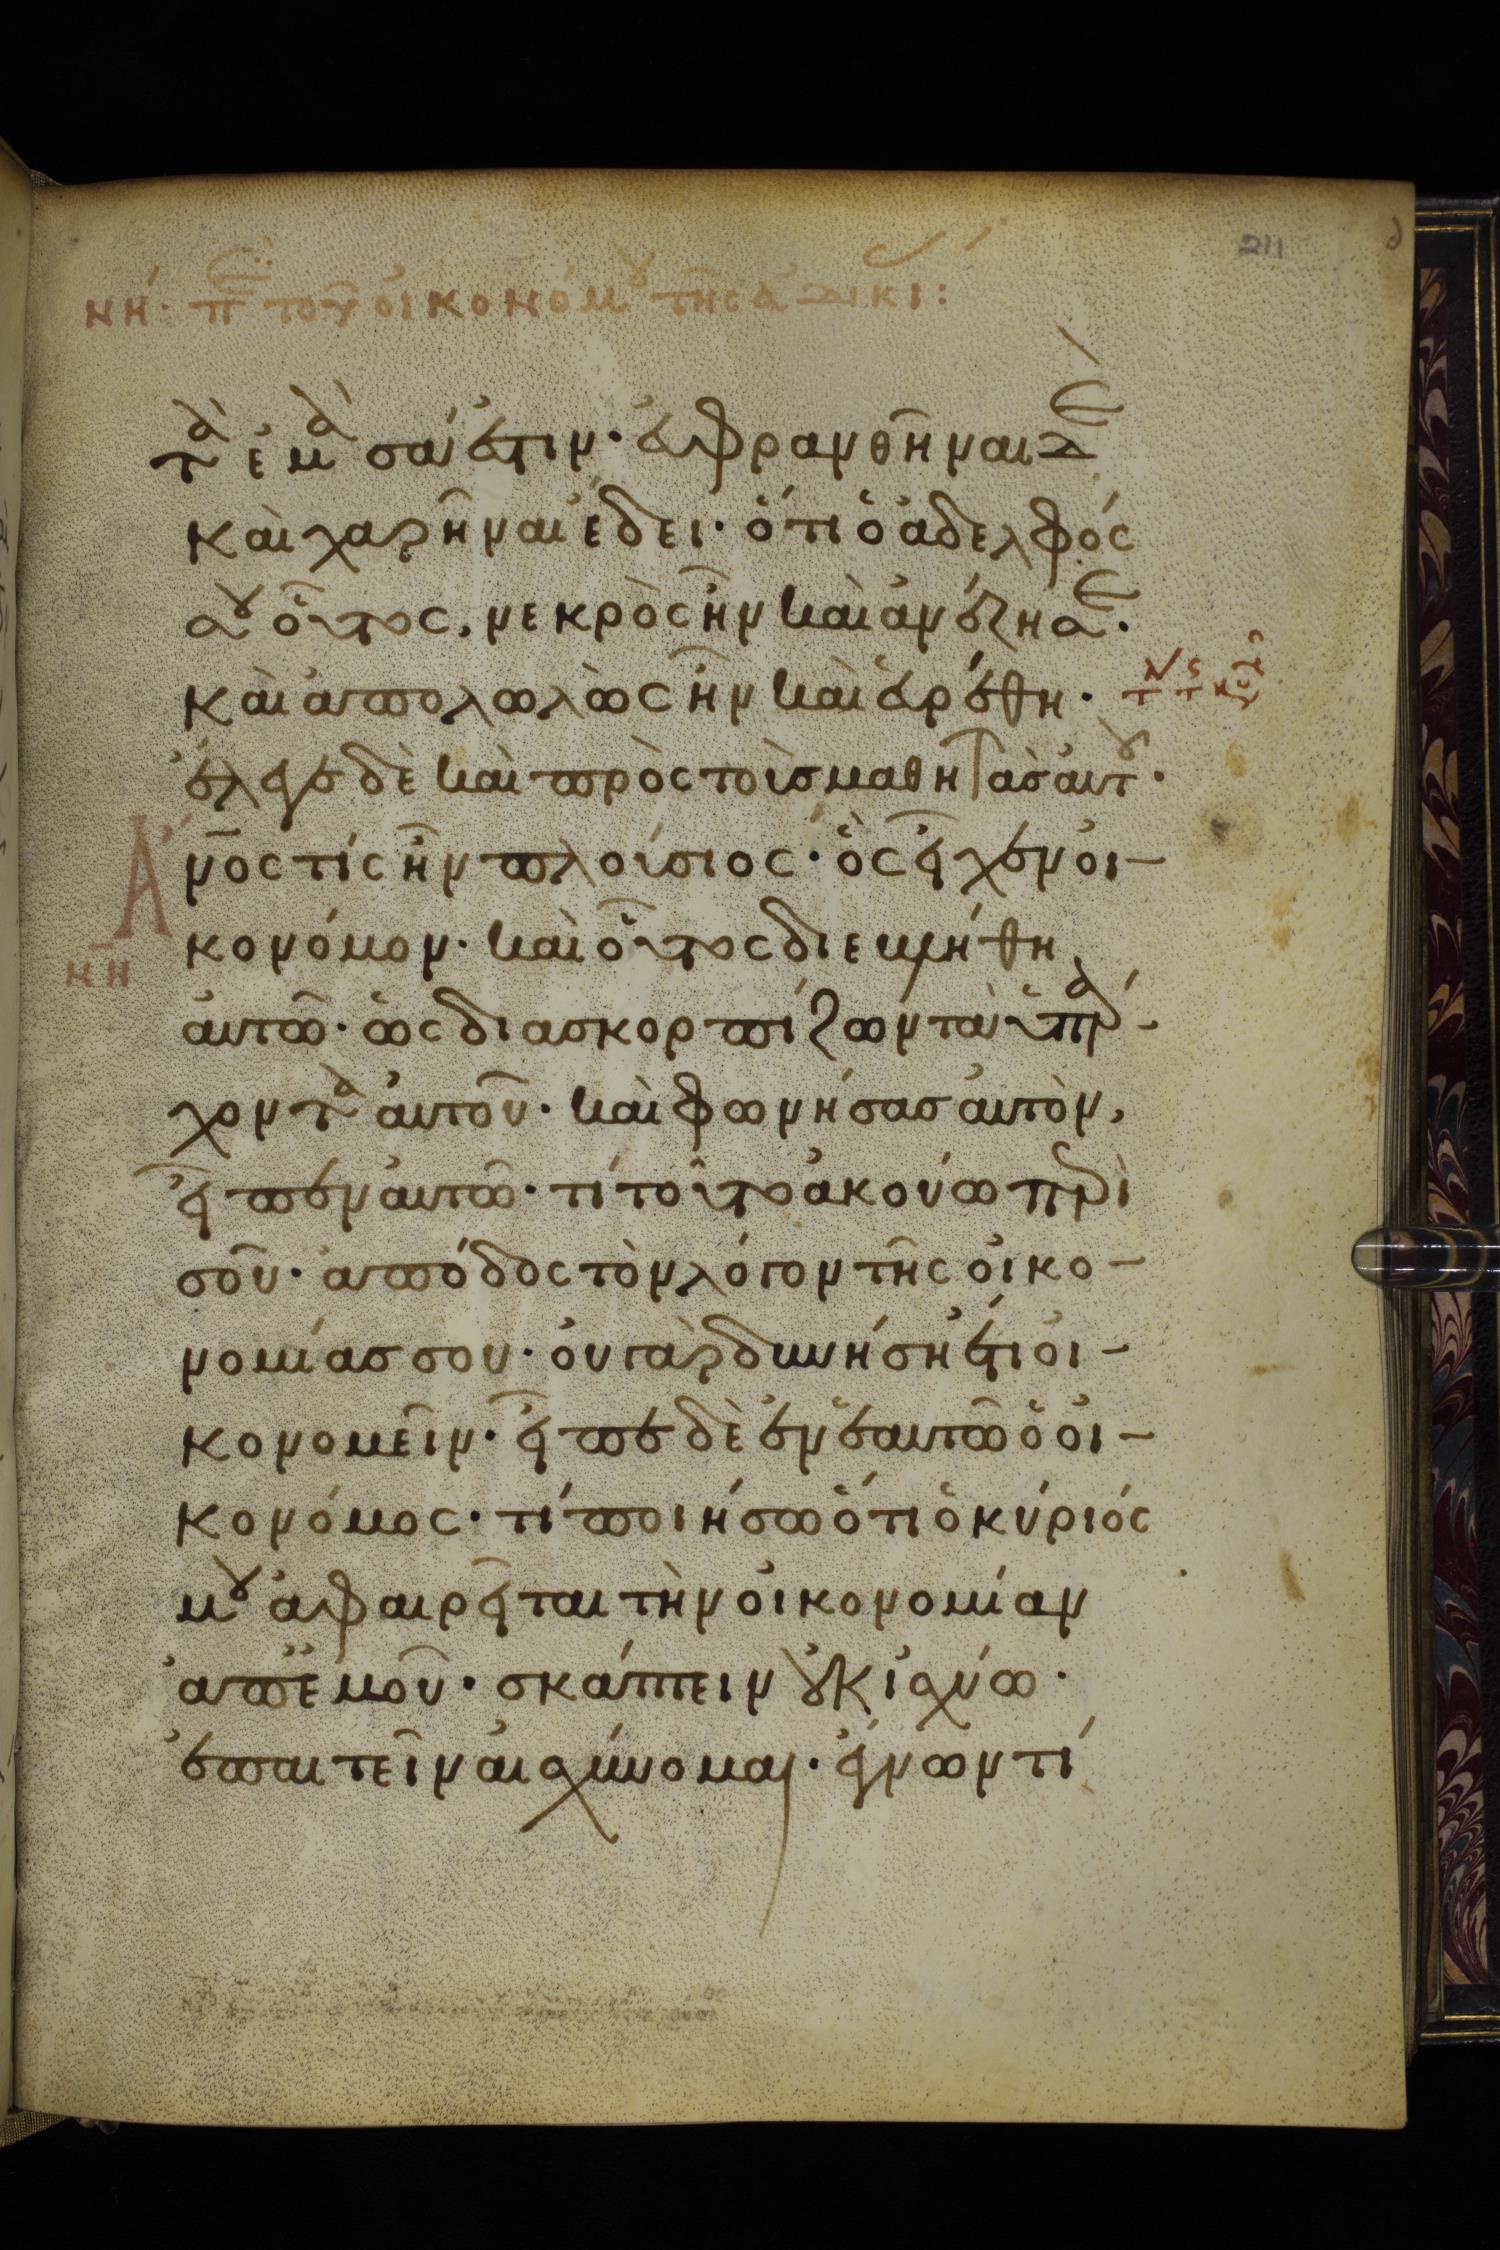 211
νη· πε τοῦ οἰκονόμου τῆς ἀδικί:
τὰ ἐμὰ σά ἐστιν· εὐφρανθῆναι δὲ
καὶ χαρῆναι ἔδει· ὅτι ὁ ἀδελφός
σου οὗτος, νεκρὸς ἦν καὶ ἀνέζησε·
καὶ ἀπολωλὼς ἦν καὶ εὑρέθη·
ἔλεγε δὲ καὶ πρὸς τοὺς μαθητὰς αὐτοῦ·
νος τίς ἦν πλούσιος· ὃς εἶχεν οἰ-
κονόμον· καὶ οὗτος διεβλήθη
αὐτῶ· ὡς διασκορπίζων τὰ ὑπάρ-
χοντα αὐτοῦ· καὶ φωνήσας αὐτὸν,
εἶπεν αὐτῶ· τί τοῦτο ἀκούω περὶ
σοῦ· ἀπόδος τὸν λόγον τῆς οἰκο-
νομίας σου· οὐ γὰρ δυνήσῃ ἔτι οἰ-
κονομεῖν· εἶπε δὲ ἐν ἑαυτῶ ὁ οἰ-
κονόμος· τί ποιήσω ὅτι ὁ κύριός
μου ἀφαιρεῖται τὴν οἰκονομίαν
ἀπ' ἐμοῦ· σκάπτειν οὐκ ἰσχύω·
ἐπαιτεῖν αἰσχύνομαι· ἔγνων τί